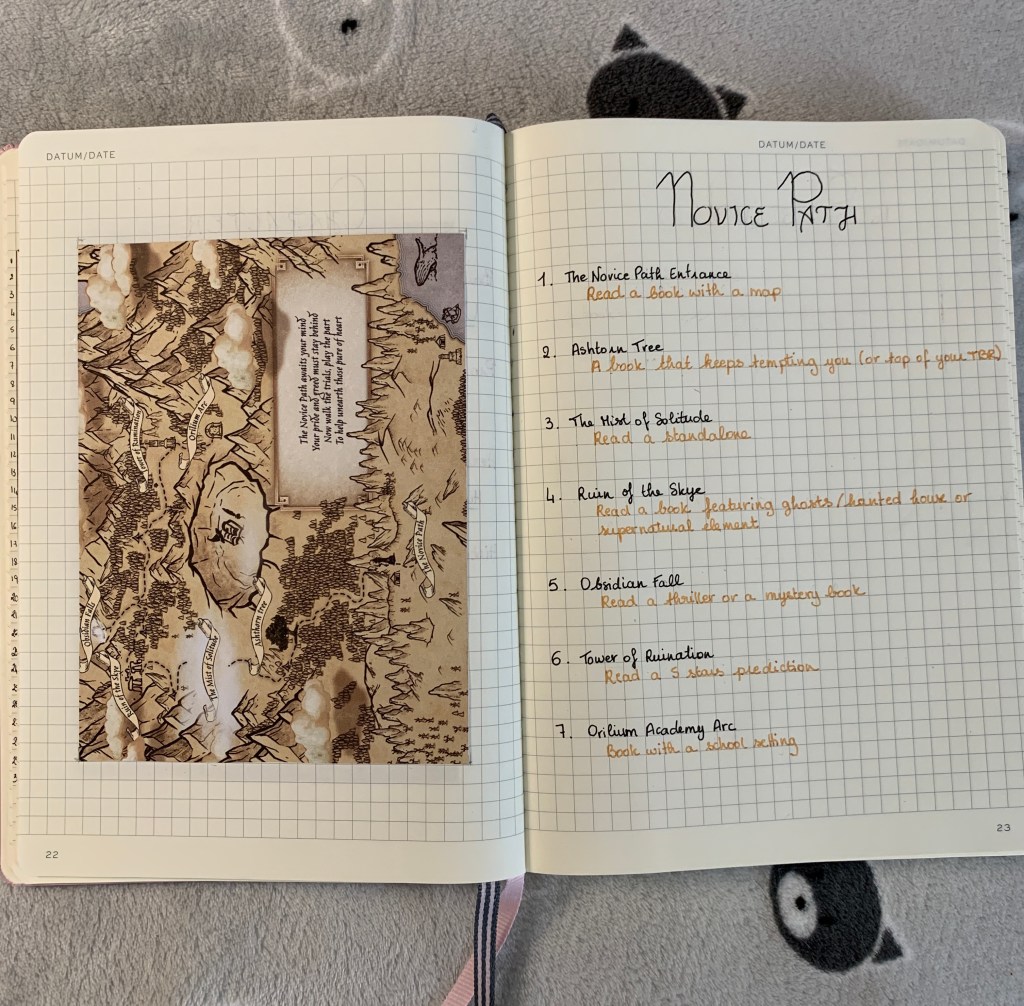 DATUM/DATE
The Novice Path awaits your mind
Your pride and greed must stay behind
Now walk the trials, play the part
To help unearth those pure of heart
Orilium Arc
Tower of Rumination
The Novice Path
Ashthorn Tree
The Mist of Solitude
Obsidian Falls
Ruin of the Skye
22
DATUM/DATE
NOVICE PATH
1. The Novice Path Entrance
Read a book with a map
2. Ashtorn Tree
A book that keeps tempting you (or top of your TBR)
3. The Mist of Solitude
Read a standalone
4. Ruin of the Skye
Read a book featuring ghosts/hanted house or
supernatural element
5. Obsidian Fall
Read a thriller or a mystery book
6. Tower of Ruination
Read a 5 stars prediction
7. Orilium Academy Arc
Book with a school setting
23